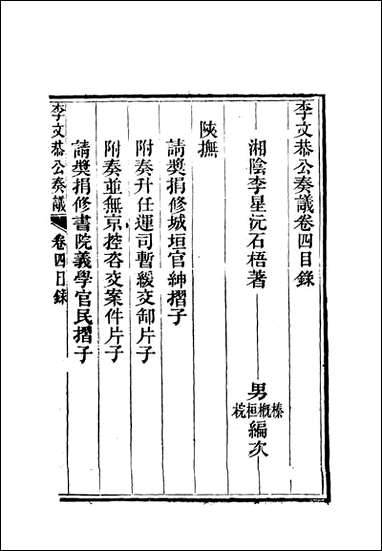 李文恭公奏議卷四目錄
湘陰李星沅石梧著
男
榛概桓梡
編次
陜撫
請奬捐修城垣官紳摺子
附奏升任運司暫緩交卸片子
附奏並無京控咨交案件片子
請奬捐修書院義學官民摺子
李文恭公奏議
卷四目錄